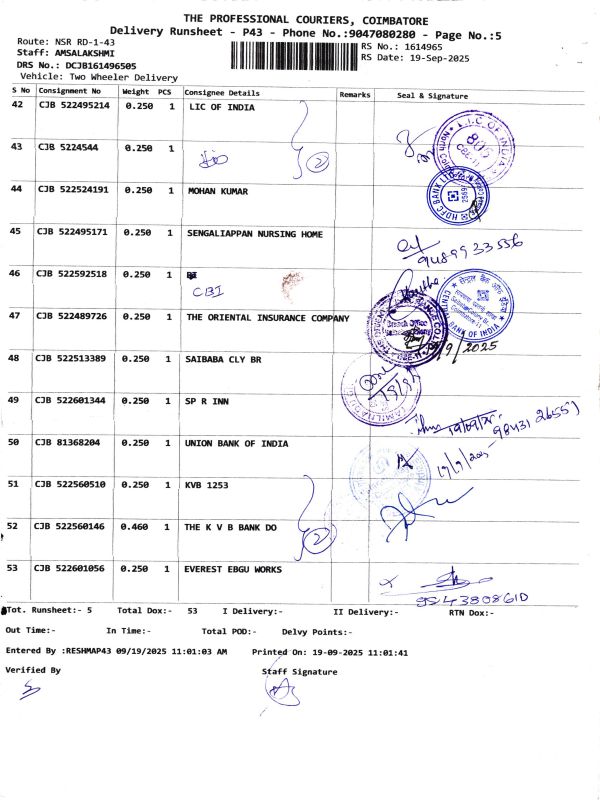 THE PROFESSIONAL COURIERS, COIMBATORE
Delivery Runsheet - P43 - Phone No.:9047080280 - Page No.:5
Route: NSR RD-1-43
Staff: AMSALAKSHMI
DRS No.: DCJB161496505
Vehicle: Two Wheeler Delivery
RS No.: 1614965
RS Date: 19-Sep-2025
S No Consignment No Weight PCS Consignee Details Remarks Seal & Signature
42 CJB 522495214 0.250 1 LIC OF INDIA
43 CJB 5224544 0.250 1
2
44 CJB 522524191 0.250 1 MOHAN KUMAR
HDFC BANK LTD
45 CJB 522495171 0.250 1 SENGALIAPPAN NURSING HOME
9489933556
46 CJB 522592518 0.250 1
CBI
CENTRAL BANK OF INDIA
47 CJB 522489726 0.250 1 THE ORIENTAL INSURANCE COMPANY
Branch Office
/9/2025
48 CJB 522513389 0.250 1 SAIBABA CLY BR
19/9/
49 CJB 522601344 0.250 1 SP R INN
19/09/25
98431 26559
50 CJB 81368204 0.250 1 UNION BANK OF INDIA
19/9/2025
51 CJB 522560510 0.250 1 KVB 1253
52 CJB 522560146 0.460 1 THE K V B BANK DO
2
53 CJB 522601056 0.250 1 EVEREST EBGU WORKS
9543808610
Tot. Runsheet:- 5 Total Dox:- 53 I Delivery:- II Delivery:- RTN Dox:-
Out Time:- In Time:- Total POD:- Delvy Points:-
Entered By :RESHMAP43 09/19/2025 11:01:03 AM Printed On: 19-09-2025 11:01:41
Verified By Staff Signature